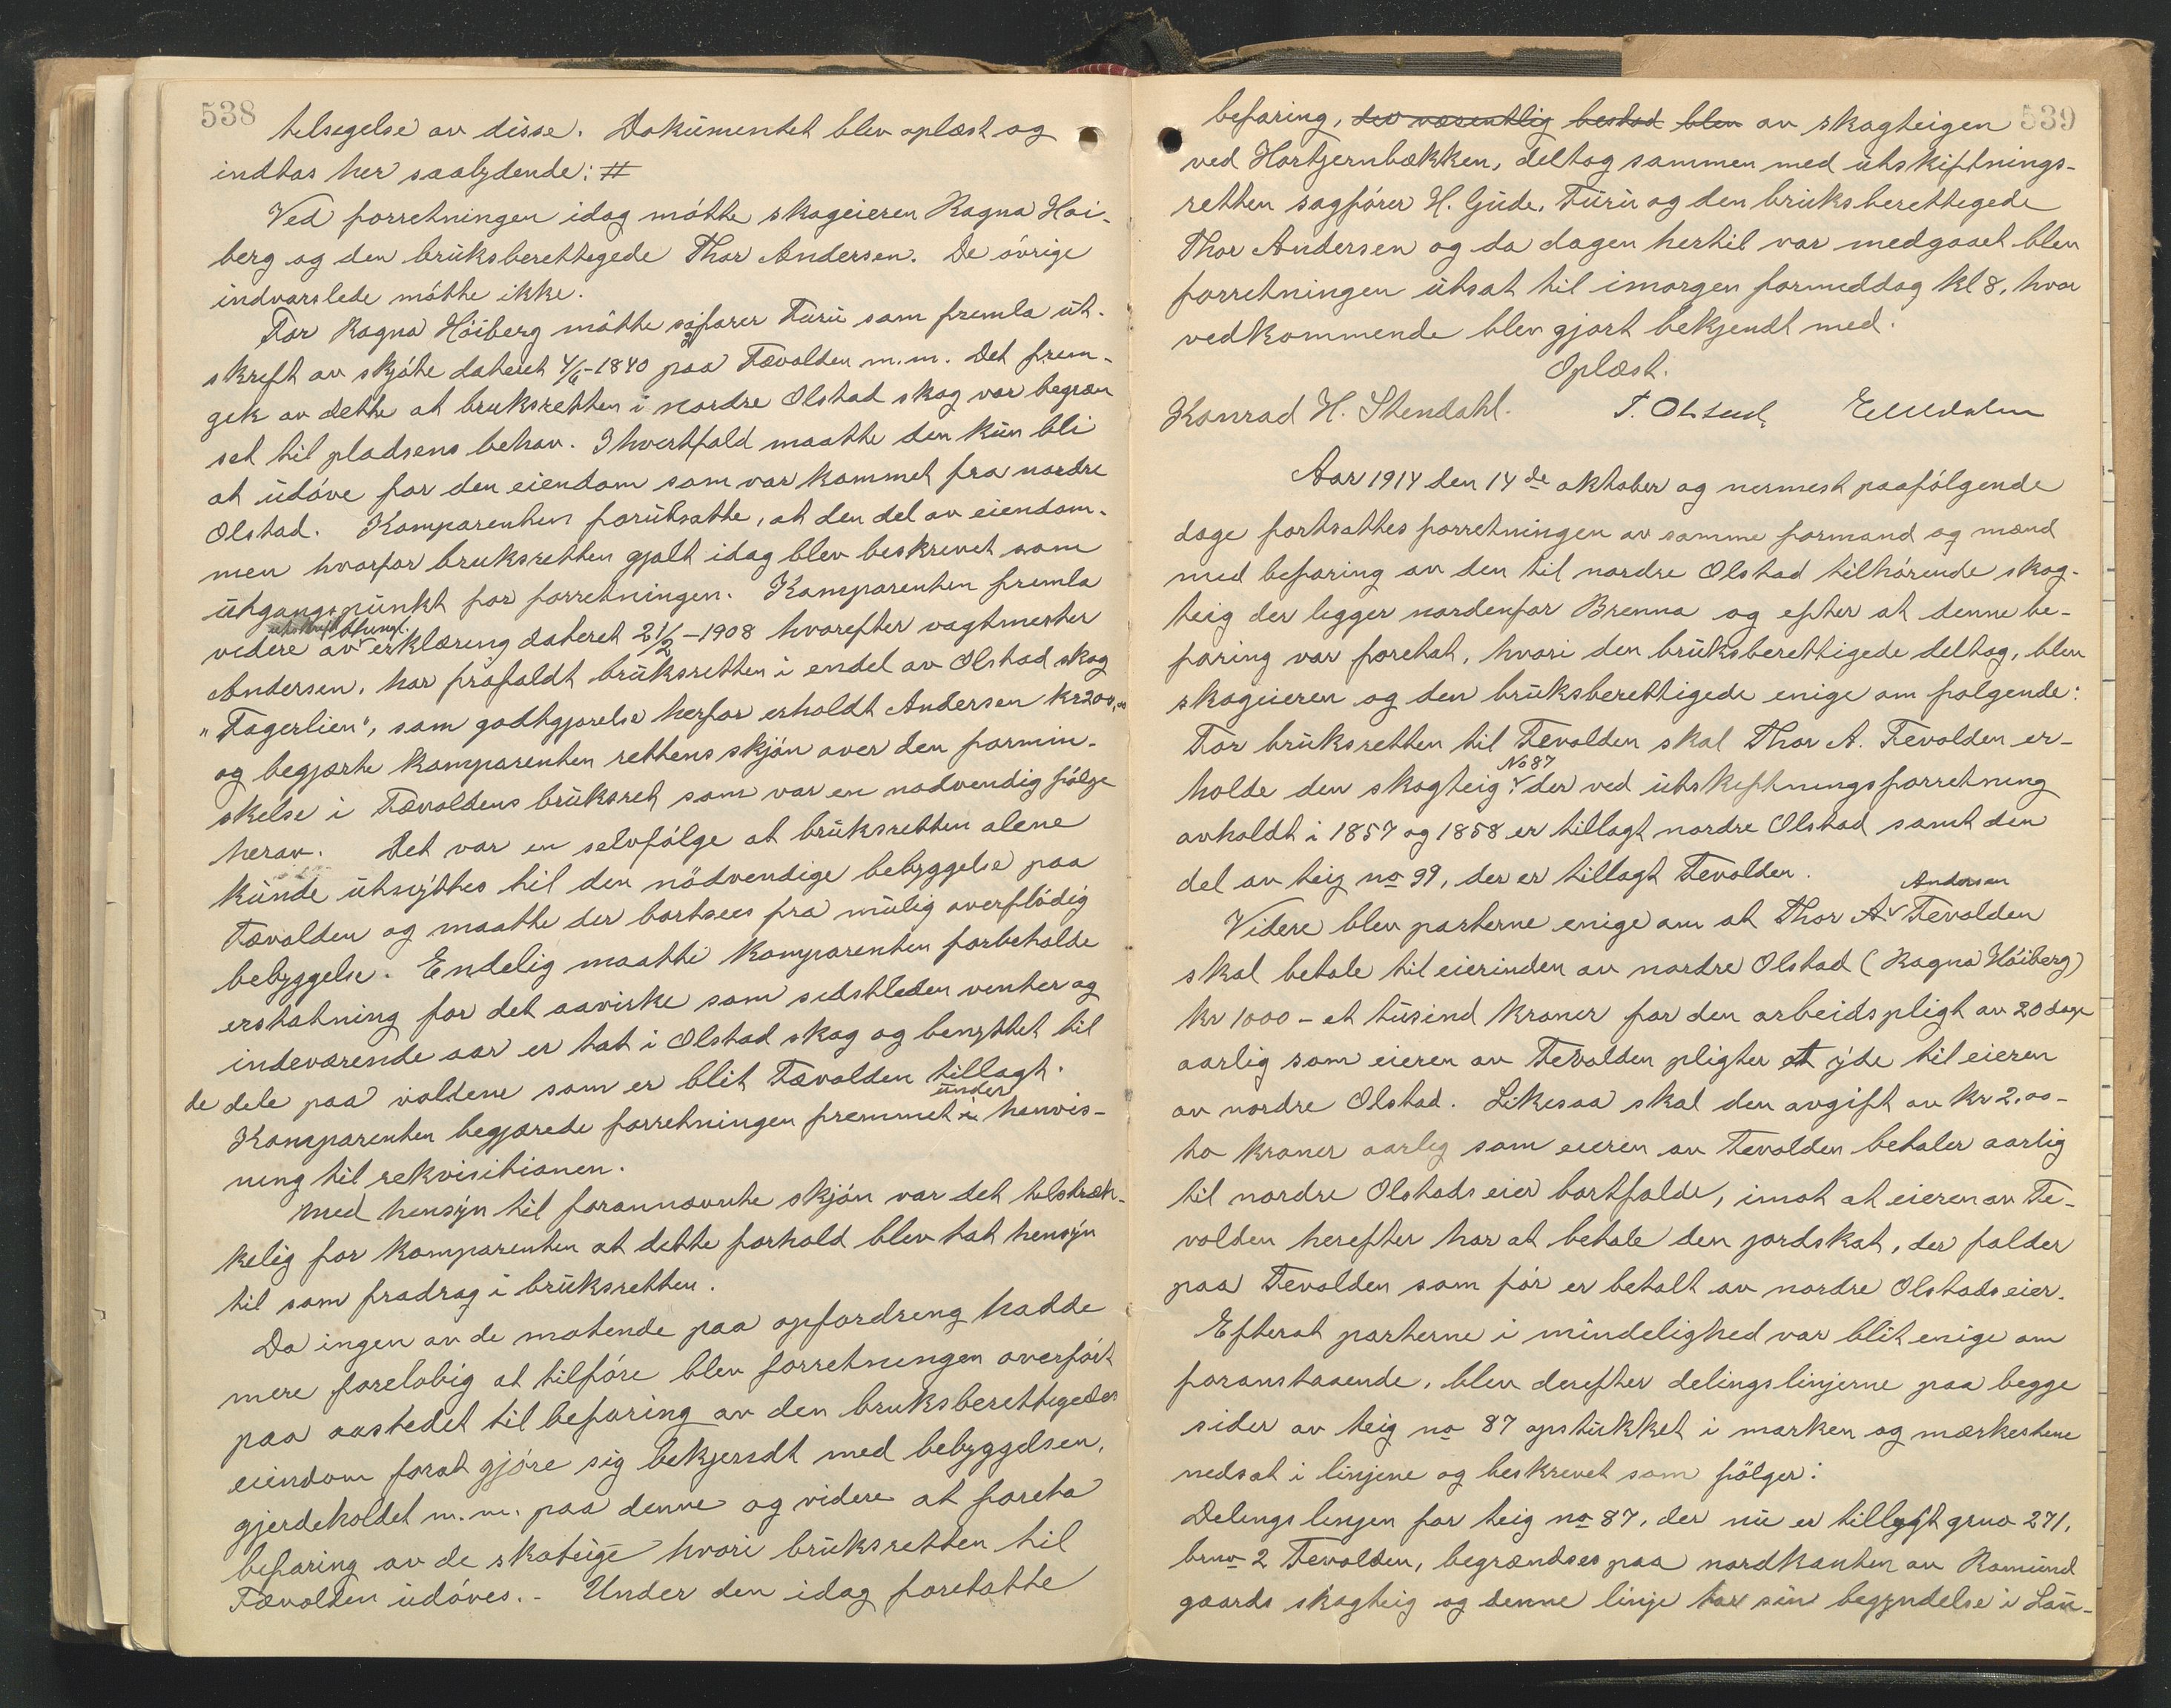 538
tilsigelse av disse. Dokumentet blev oplæst og
indtas her saalydende: #
Ved forretningen idag mötte skogeieren Ragna Hoi-
berg og den bruksberettigede Thor Andersen. De övrige
indvarslede mötte ikke.
For Ragna Höiberg mötte sagförer Furu som fremla ut-
skrift av skjöte dateret 4/6-1840 paa Fævolden m.m. Det frem-
gik av dette at bruksretten i nordre Olstad skog var begræn
set til pladsens behov. I hvertfald maatte den kun bli
at udöve for den eiendom som var kommet fra nordre
Olstad. Komparenten forutsatte, at den del av eiendom-
men hvorfor bruksretten gjalt idag blev beskrevet som
utgangspunkt for forretningen. Komparenten fremla
videre av erklæring dateret 21/2-1908 hvorefter vagtmester
Andersen, har frafaldt bruksretten i endel av Olstad skog
"Fagerlien", som godtgjorelse herfor erholdt Andersen kr 200,00
og begjærte komparenten rettens skjön over den formin-
skelse i Fævoldens bruksret som var en nodvendig fölge
herav. Det var en selvfölge at bruksretten alene
kunde utnyttes til den nödvendige bebyggelse paa
Fævolden og maatte der bortsees fra mulig overflödig
bebyggelse. Endelig maatte komparenten forbeholde
erstatning for det aavirke som sidstleden venter og
indeværende aar er tat i Olstad skog og benyttet til
de dele paa voldene som er blit Fævolden tillagt.
under
Komparenten begjærede forretningen fremmet i henvis-
ning til rekvisitionen.
Med hensyn til forannævnte skjön var det tilstræk-
kelig for komparenten at dette forhold blev tat hensyn
til som fradrag i bruksretten.
Da ingen av de mötende paa opfordring hadde
mere forelobig at tilföre blev forretningen overfört
paa aastedet til befaring av den bruksberettigedes
eiendom forat gjöre sig bekjendt med bebyggelsen,
gjerdeholdet m.m. paa denne og videre at foreta
befaring av de skoteige hvori bruksretten til
Fævolden udöves. - Under den idag foretatte
539
befaring, der væsentlig bestod blev av skogteigen
ved Hortjernbækken, deltog sammen med utskiftnings-
retten sagförer H. Gude, Furu og den bruksberettegede
Thor Andersen og da dagen hertil var medgaaet blev
forretningen utsat til imorgen formeddag kl 8, hvor
vedkommende blev gjort bekjendt med.
Oplæst.
Konrad H. Stendahl.
Aar 1914 den 14de oktober og nermest paafölgende
dage fortsattes forretningen av samme formand og mænd
med befaring av den til nordre Olstad tilhörende skog-
teig der ligger nordenfor Brenna og efter at denne be-
faring var foretat, hvori den bruksberettigede deltog, blev
skogeieren og den bruksberettigede enige om folgende:
For bruksretten til Fevolden skal Thor A. Fevolden er-
No 87
holde den skogteig der ved utskiftningsforretning
avholdt i 1857 og 1858 er tillagt nordre Olstad samt den
del av teig no 99, der er tillagt Fevolden.
Andersen
Videre blev parterne enige om at Thor A Fevolden
skal betale til eierinden av nordre Olstad (Ragna Höiberg)
kr 1000 - et tusind kroner for den arbeidspligt av 20 dage
aarlig som eieren av Fevolden pligter at yde til eieren
av nordre Olstad. Likesaa skal den avgift av kr 2,00-
to kroner aarlig som eieren av Fevolden betaler aarlig
til nordre Olstads eier bortfalde, imot at eieren av Fe-
volden herefter har at betale den jordskat, der falder
paa Fevolden som för er betalt av nordre Olstads eier.
Efterat parterne i mindelighed var blit enige om
foranstaaende, blev derefter delingslinjerne paa begge
sider av teig no 87 opstukket i marken og mærkestene
nedsat i linjene og beskrevet som fölger:
Delingslinjen for teig no 87, der nu er tillagt gno 271,
brno 2 Fevolden, begrændses paa nordkanten av Romund
gaards skogteig og denne linje tar sin begyndelse i Lau-